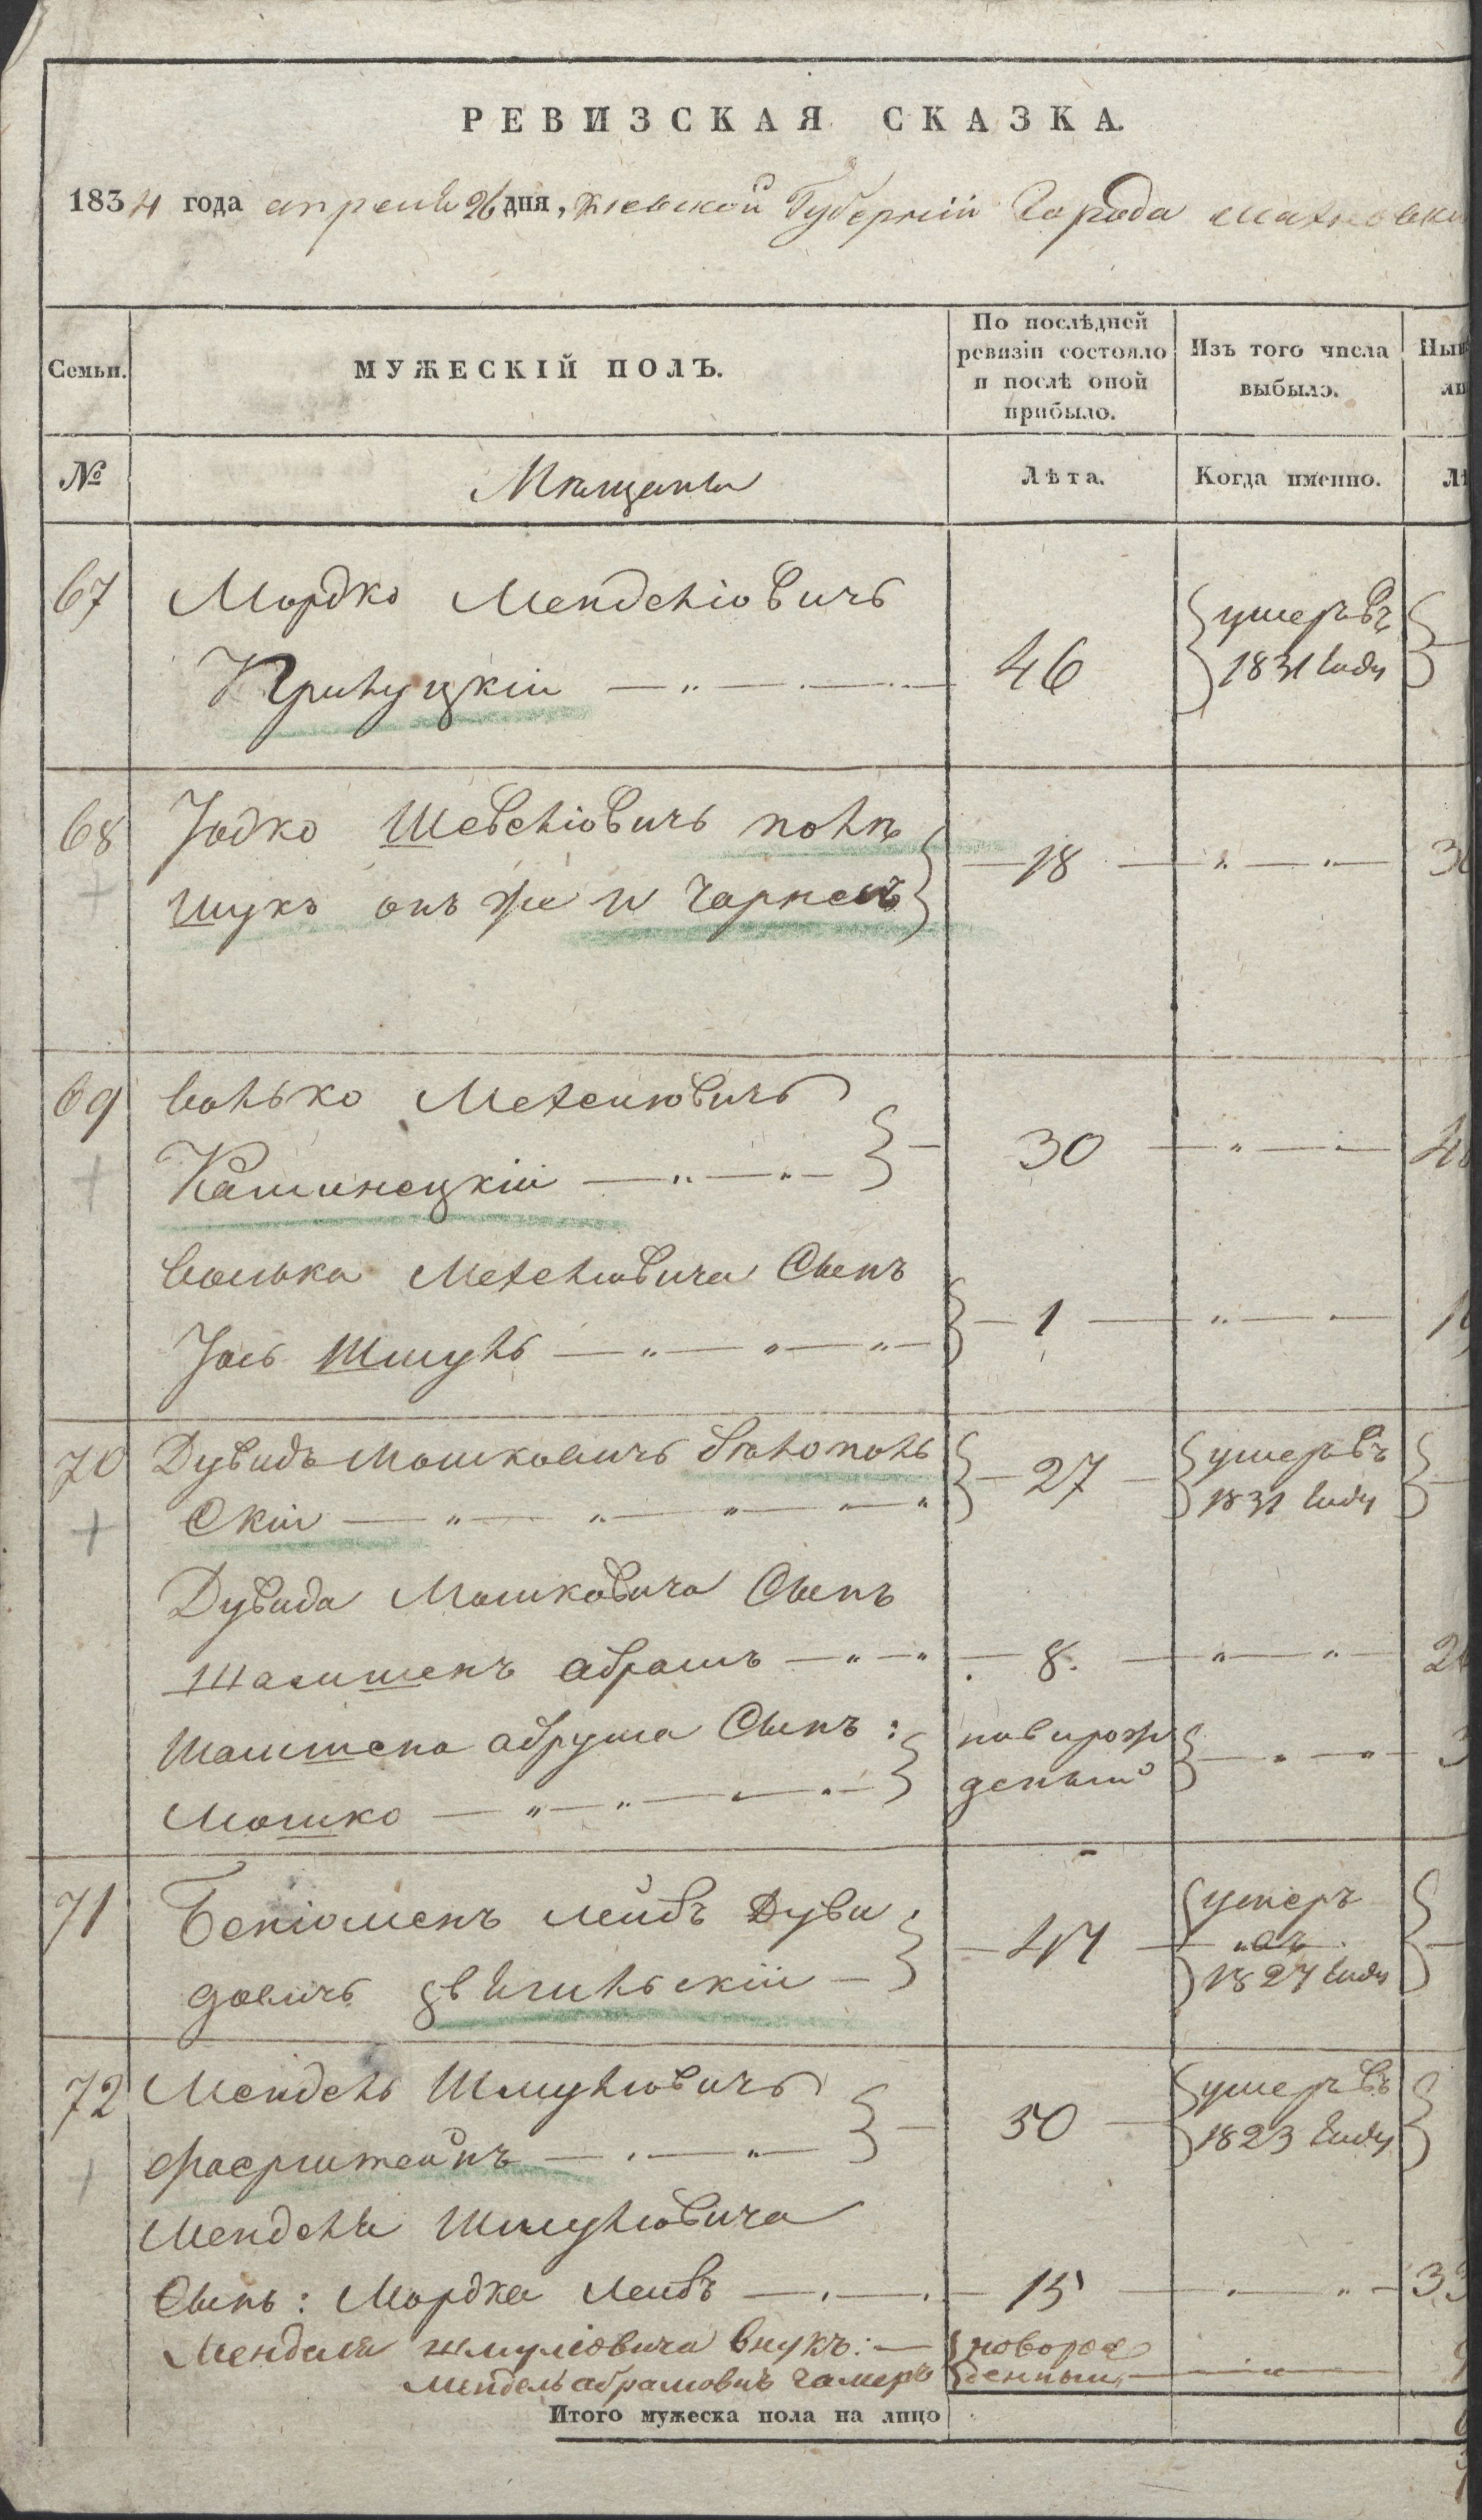 РЕВИЗСКАЯ СКАЗКА.
1834 года апреля 26 дня, Киевской Губернии Города Махновки
Семьи.
МУЖЕСКІЙ ПОЛЪ.
По послѣдней ревизіи состояло и послѣ оной прибыло.
Изъ того числа выбыло.
№
Мѣщане
Лѣта.
Когда именно.
67
Мордко Менделіовичь
Прилуцкій
46
умеръ въ
1831 году
68
Іодко Шевеліовичь поли
шукъ онъ же и Чарнесъ
18
69
Волько Мехелювичь
Каминецкій
30
Волька Мехелювича Сынъ
Іось Шмуль
1
70
Дувидъ Мошковичь бѣлополь
Скій
27
умеръ въ
1831 году
Дувида Мошковича Сынъ
абрамъ
8.
абрума Сынъ:
Мошко
новорож
деный
71
Беніоменъ Лейбъ Дуви
довичь звѣгильскій
47
умеръ
въ
1827 году
72
Мендель Шмулювичь
Фаерштейнъ
50
умеръ въ
1823 году
Менделя Шмулювича
Сынъ: Мордка Лейбъ
15
33
Менделя шмуліовича внукъ:
Мендель абрамовичъ
новорож
денный
Итого мужеска пола на лицо